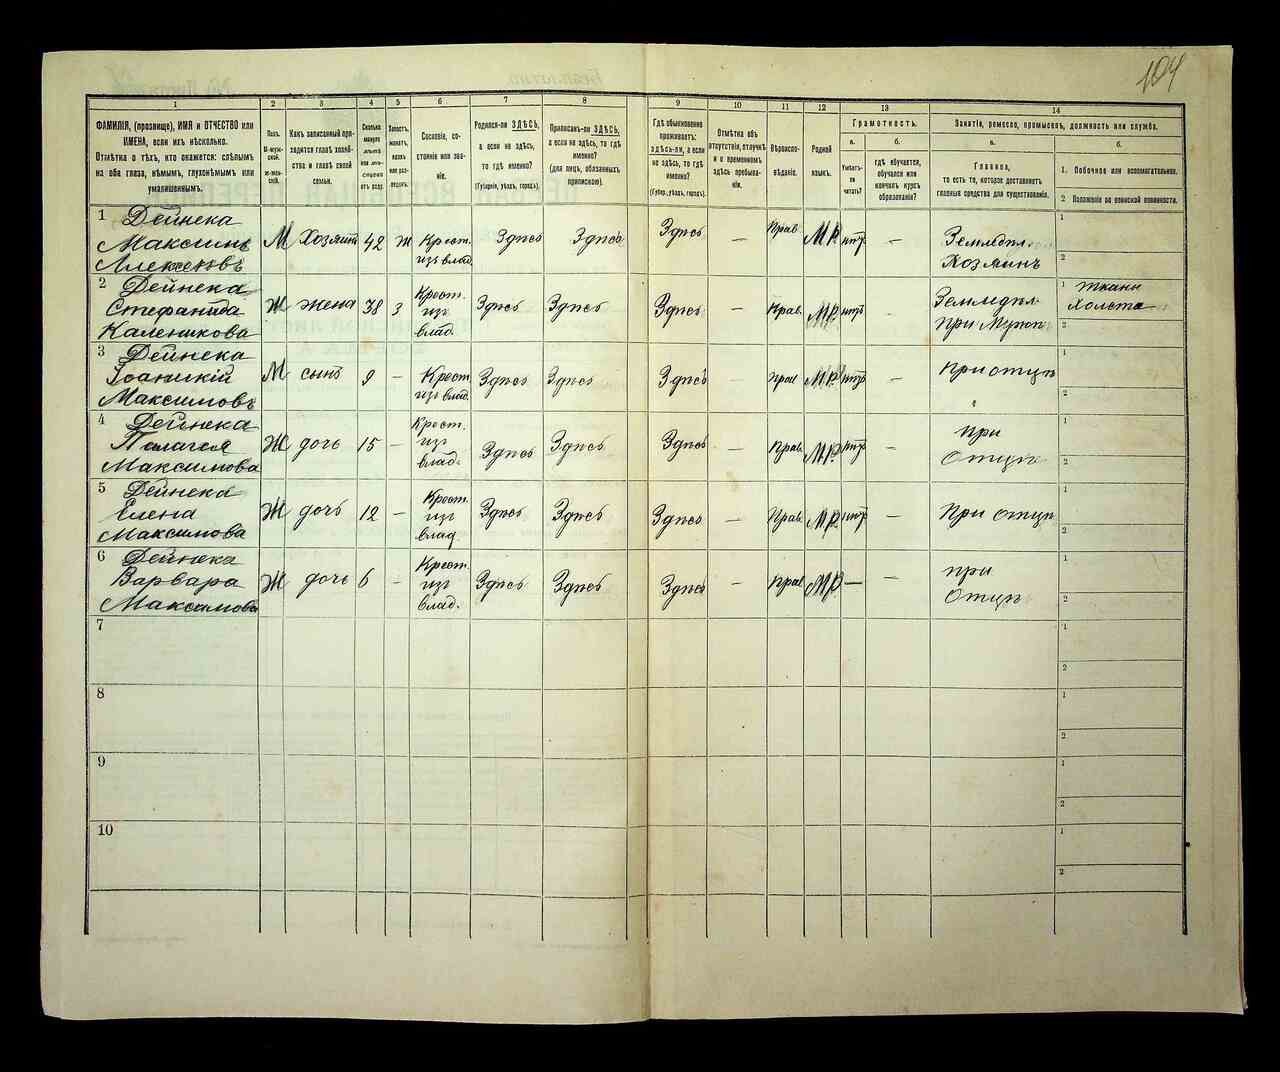 104
1 2 3 4 5 6 7 8 9 10 11 12 13 14
ФАМИЛІЯ, (прозвище), ИМЯ и ОТЧЕСТВО или
ИМЕНА, если ихъ нѣсколько.
Отмѣтка о тѣхъ, кто окажется: слѣпымъ
на оба глаза, нѣмымъ, глухонѣмымъ или
умалишеннымъ.
Полъ.
М-муж-
ской.
Ж-жен-
скій.
Какъ записанный при-
ходится главѣ хозяй-
ства и главѣ своей
семьи.
Сколько
минуло
лѣтъ
или мѣ-
сяцевъ
отъ роду.
Холостъ,
женатъ,
вдовъ
или раз-
веденъ.
Сословіе, со-
стояніе или зва-
ніе.
Родился-ли ЗДѢСЬ,
а если не здѣсь,
то гдѣ именно?
(Губернія, уѣздъ, городъ).
Приписанъ-ли ЗДѢСЬ,
а если не здѣсь, то гдѣ
именно?
(для лицъ, обязанныхъ
припискою).
Гдѣ обыкновенно
проживаетъ:
здѣсь-ли, а если
не здѣсь, то гдѣ
именно?
(Губер., уѣздъ, городъ).
Отмѣтка объ
отсутствіи, отлучкѣ
и о временномъ
здѣсь пребыва-
ніи.
Вѣроиспо-
вѣданіе.
Родной
языкъ.
Грамотность.
а. б.
Умѣетъ-
ли
читать?
гдѣ обучается,
обучался или
кончилъ курсъ
образованія?
Занятіе, ремесло, промыселъ, должность или служба.
а. б.
Главное,
то есть то, которое доставляетъ
главныя средства для существованія.
1. Побочное или вспомогательное.
2 Положеніе по воинской повинности.
1 Дейнека
Максимъ
Алексеевъ
М Хозяин 42 ж Крест. изъ влад. Здѣсь Здѣсь Здѣсь — Прав. М.Р. нтъ — Земледѣл. Хозяинъ
1
2
2 Дейнека
Стефанида
Каленикова
Ж жена 38 з Крест. изъ влад. Здѣсь Здѣсь Здѣсь — Прав. М.Р. нтъ — Земледѣл. при Мужѣ
1 Ткани Холста
2
3 Дейнека
Іоаникій
Максимовъ
М сынъ 9 — Крест. изъ влад. Здѣсь Здѣсь Здѣсь — Прав М.Р. нтъ — При отцѣ
1
2
4 Дейнека
Пелагея
Максимова
Ж дочь 15 — Крест. изъ влад. Здѣсь Здѣсь Здѣсь — Прав. М.Р. нтъ — при Отцѣ
1
2
5 Дейнека
Елена
Максимова
Ж дочь 12 — Крест. изъ влад Здѣсь Здѣсь Здѣсь — Прав. М.Р. нтъ — При отцѣ
1
2
6 Дейнека
Варвара
Максимова
Ж дочь 6 — Крест. изъ влад. Здѣсь Здѣсь Здѣсь — Прав М.Р. — — при Отцѣ
1
2
7
1
2
8
1
2
9
1
2
10
1
2